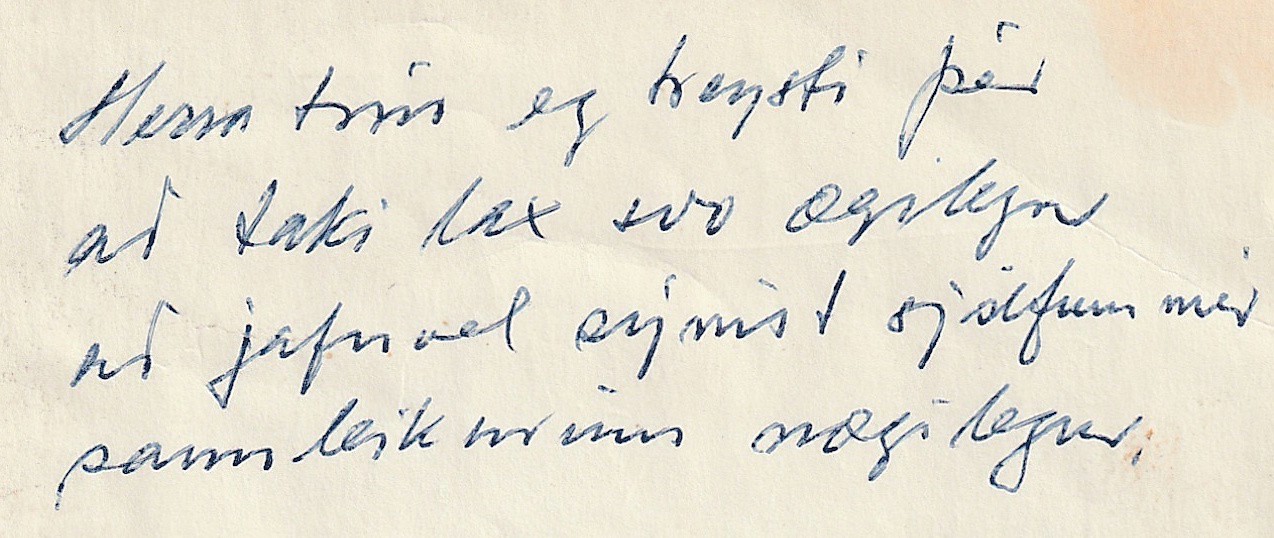 Herra trúr eg treysti þér
að taki lax svo ægilegur
að jafnvel sýnist sjálfum mér
sannleikurinn nægilegur.